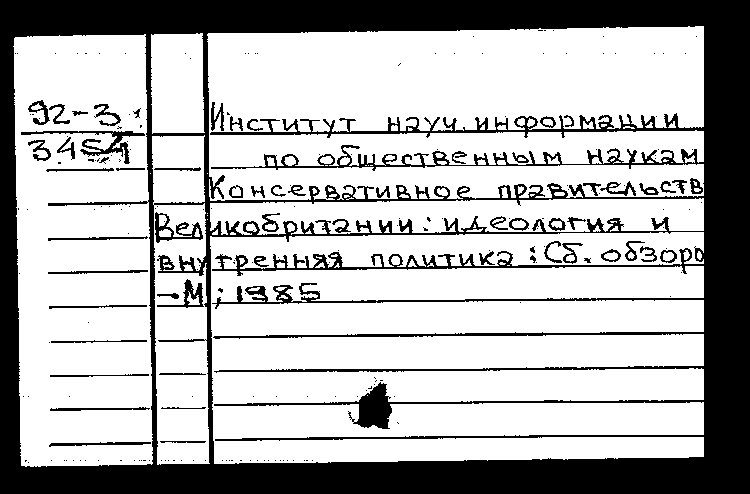 92-3
3454
Институт науч. информации
по общественным наукам
Консервативное правительств
Великобритании: идеология и
внутренняя политика: Сб. обзоро
-М; 1985